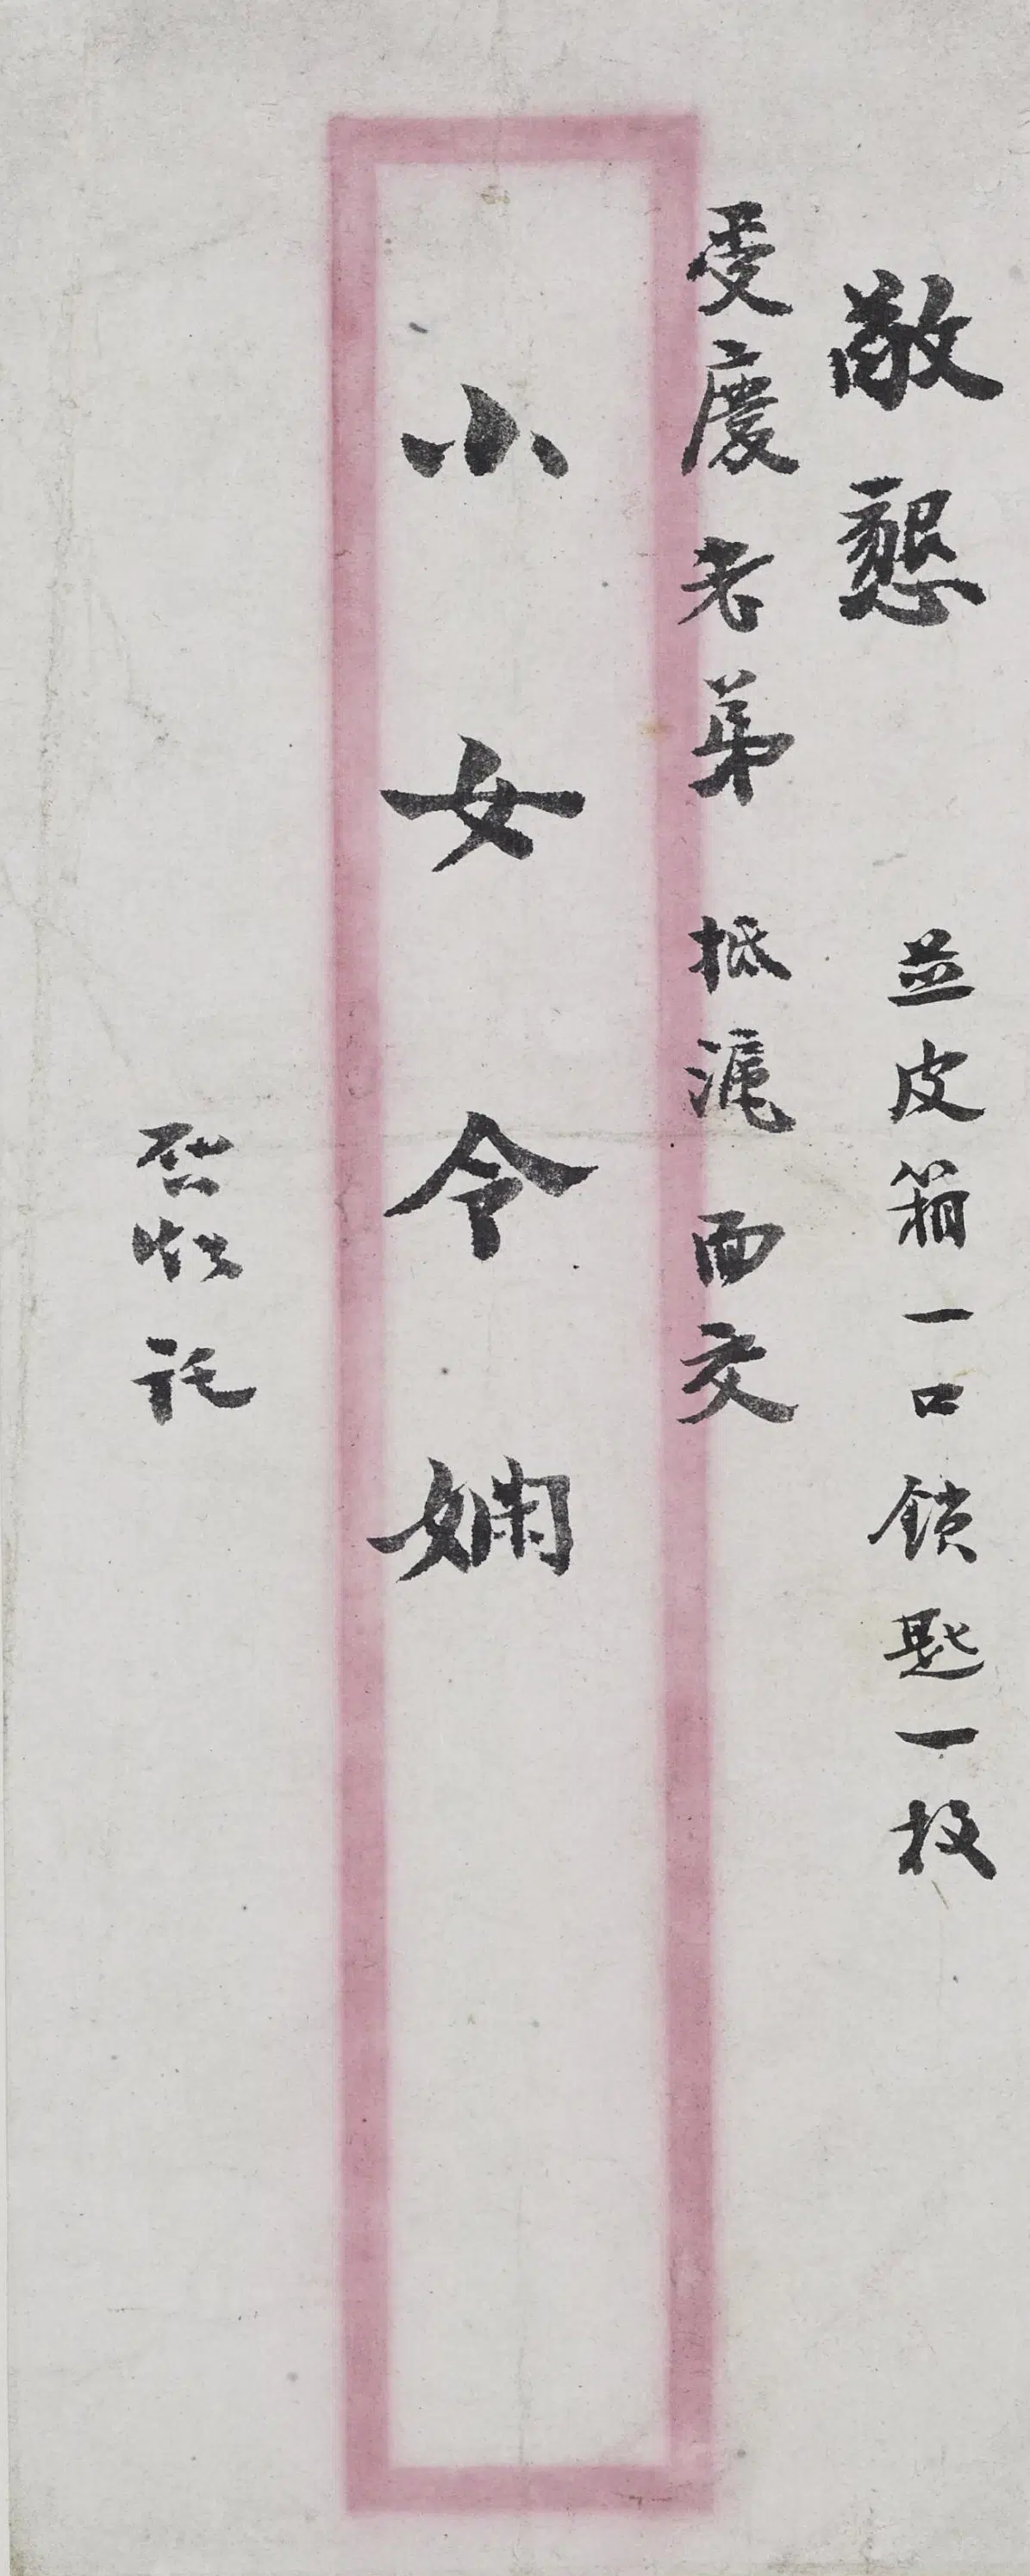 敬懇　並皮箱一口鎖匙一枚
受慶老弟　抵滬面交
小女令嫻
託